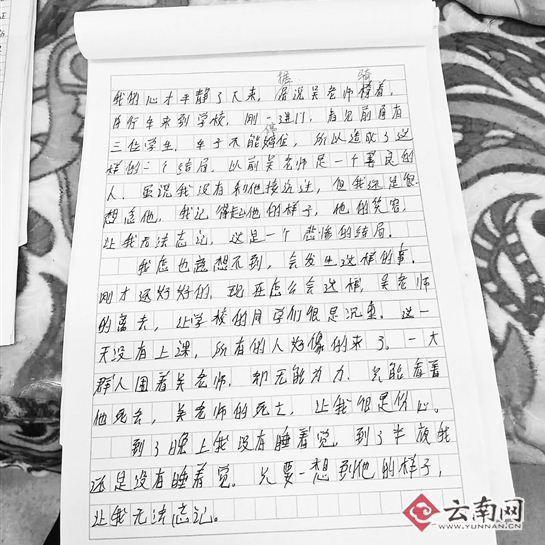 据 骑
我的心才平静了下来,居说吴老师棒着,
自行车来到学校,刚一进门,看见前面有
三位学生,车子不能停住,所以造成了这
样的一个结局,以前吴老师是一个善良的
人,虽说我没有和他接近过,但我还是很
想念他,我记得起他的样子,他的笑容,
让我无法忘记,这是一个悲惨的结局。
我怎也意想不到,会发生这样的事,
刚才还好好的,现在怎么会这样,吴老师
的离去,让学校的同学们很是沉重。这一
天没有上课,所有的人好像的来了。一大
群人围着吴老师,却无能为力,只能看着
他死去,吴老师的死亡,让我很是伤心。
到了晚上我没有睡着觉,到了半夜我
还是没有睡着觉。只要一想到他的样子,
让我无法忘记。
云南网
WWW.YUNNAN.CN